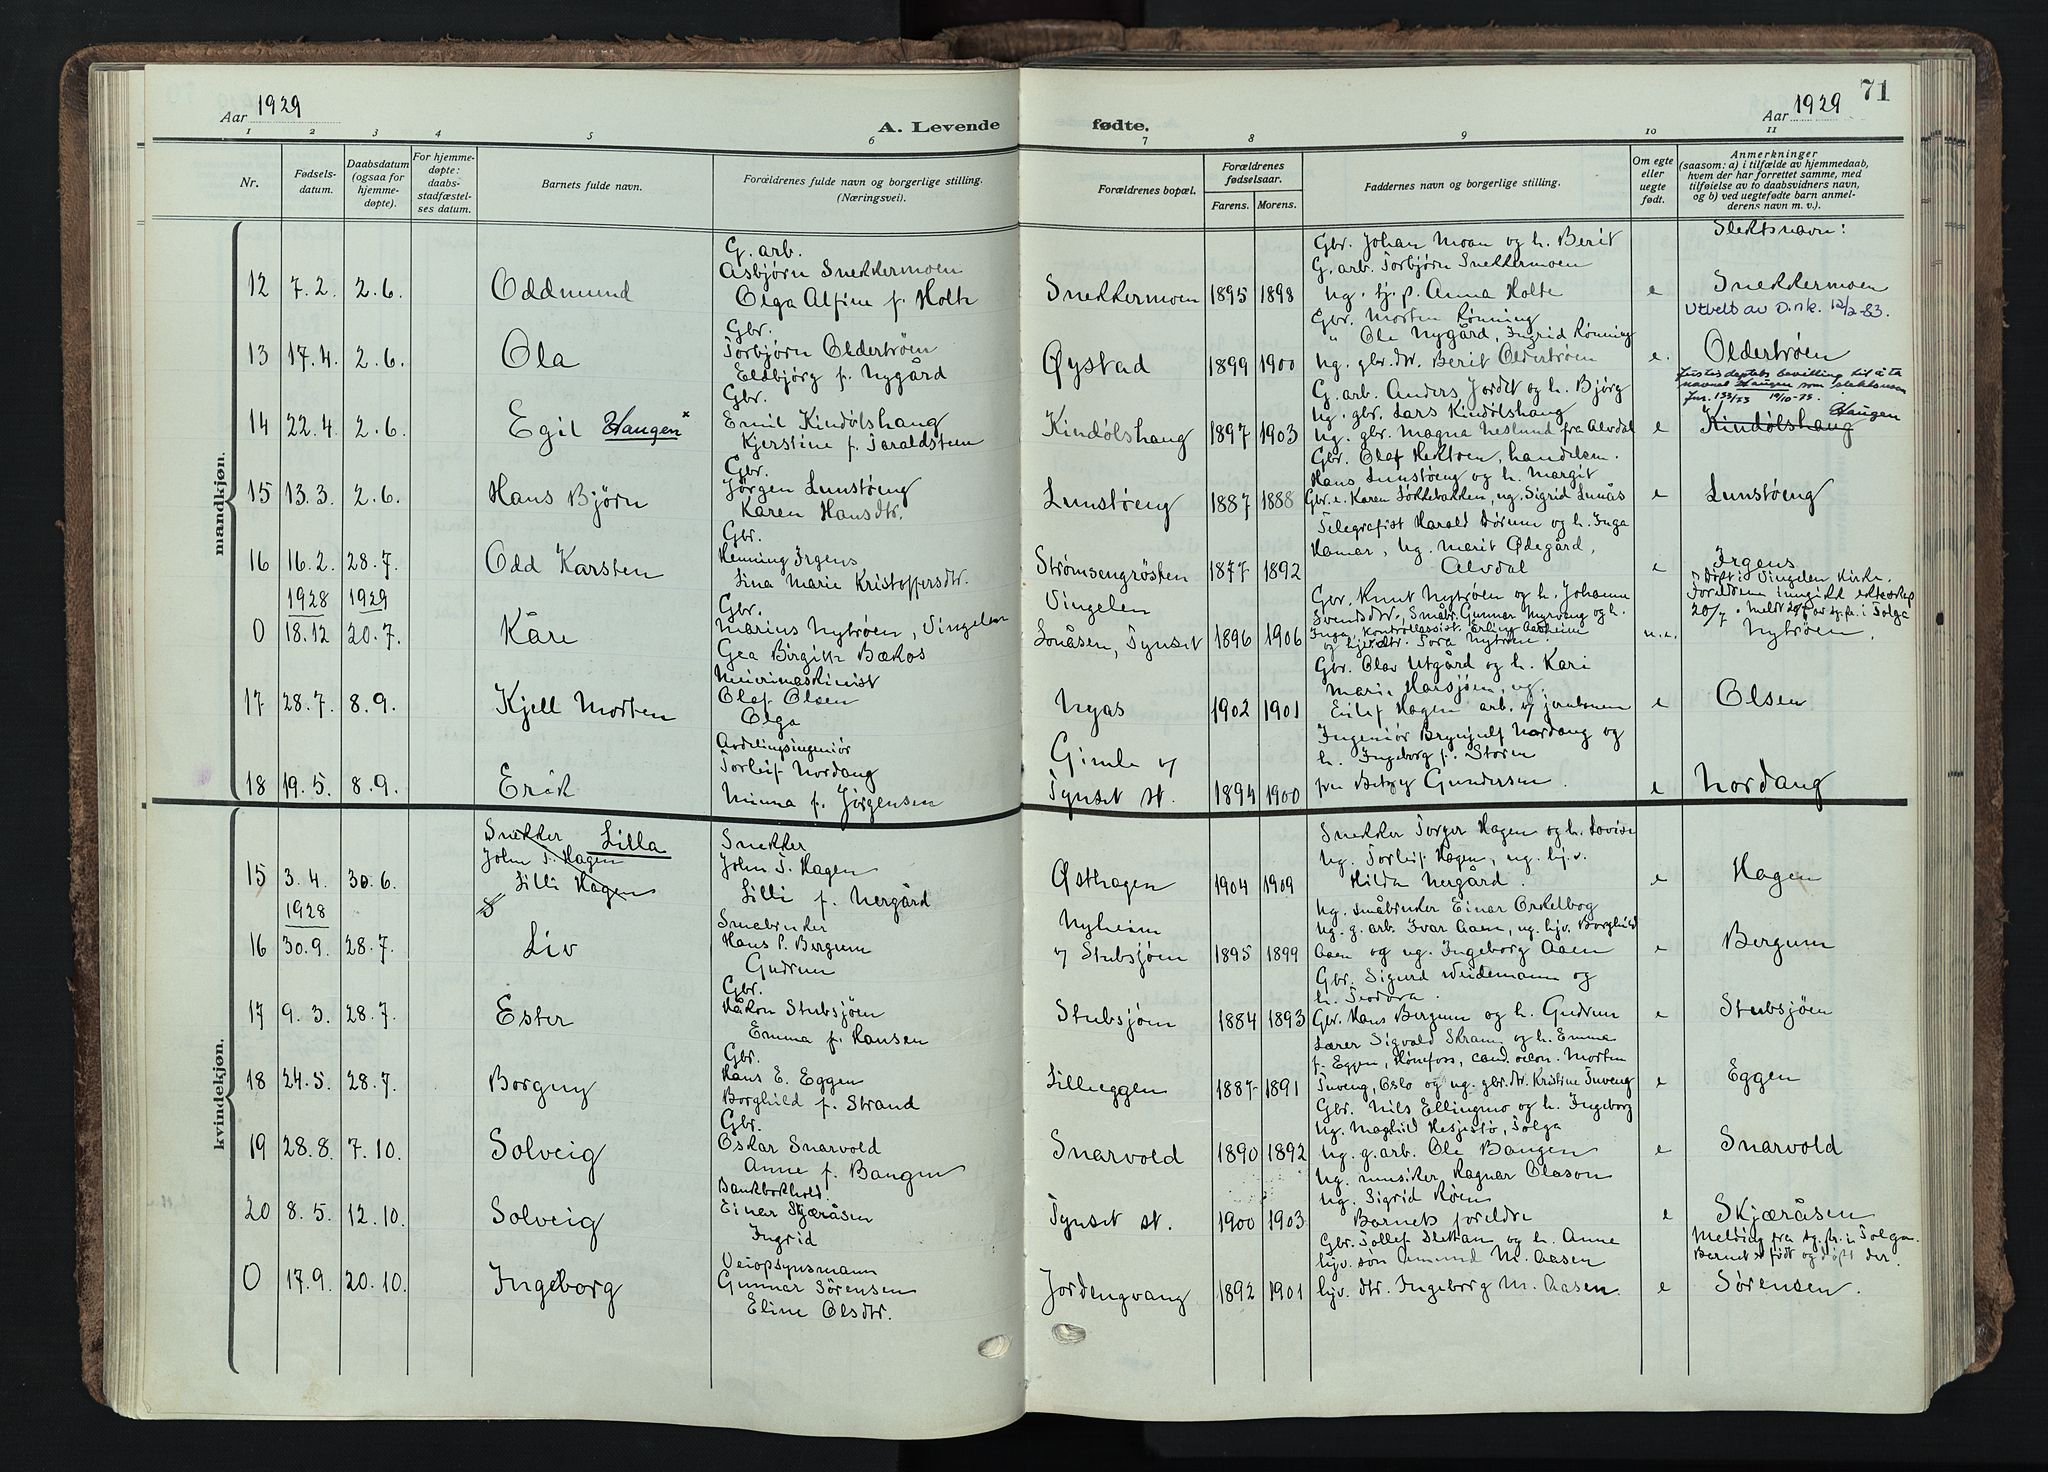 Aar 1929
A. Levende fødte.
Aar 1929
71
1 2 3 4 5 6 7 8 9 10 11
Nr.
Fødsels-
datum.
Daabsdatum
(ogsaa for
hjemme-
døpte).
For hjemme-
døpte:
daabs-
stadfæstel-
ses datum.
Barnets fulde navn.
Forældrenes fulde navn og borgerlige stilling.
(Næringsvei).
Forældrenes bopæl.
Forældrenes
fødselsaar.
Farens. Morens.
Faddernes navn og borgerlige stilling.
Om egte
eller
uegte
født.
Anmerkninger
(saasom: a) i tilfælde av hjemmedaab,
hvem der har forrettet samme, med
tilføielse av to daabsvidners navn,
og b) ved uegtefødte barn anmel-
derens navn m. v.).
Slektsnavn:
mandkjøn.
12 7.2. 2.6. Oddmund
G. arb.
Asbjørn Snekkermoen
Olga Alfine f. Holte
Snekkermoen 1895 1898
Gbr. Johan Moan og h. Berit
G. arb. Torbjørn Snekkermoen
Ug. tj. p. Anna Holte
e Snekkermoen
Utvelt av D.n.k. 12/2-83.
13 17.4. 2.6. Ola
Gbr.
Torbjørn Oldertrøen
Eldbjørg f. Nygård
Øystad 1899 1900
Gbr. Morten Rønning
" Ole Nygård, Ingrid Rønning
Ug. gbr. dtr. Berit Oldertrøen
e. Oldertrøen
14 22.4. 2.6. Egil Haugen x
Gbr.
Emil Kindølshaug
Kjerstine f. Taraldsteen
Kindølshaug 1897 1903
G. arb. Anders Jordet og h. Bjørg
Ug. gbr. Lars Kindølshaug
Ug. gbr. Magna Neslund fra Alvdal
e
Justisdeptets bevilling til å ta
navnet Haugen som slektsnavn
Jnr. 133/73 19/10-73.
Haugen
Kindølshaug
15 13.3. 2.6. Hans Bjørn
Gbr.
Jørgen Lunstøeng
Karen Hansdtr.
Lunstøeng 1887 1888
Gbr. Olaf Hektoen, handelsm.
Hans Lunstøeng og h. Margit
Gbr. e. Karen Løkkebakken, ug. Sigrid Lunås
e Lunstøeng
16 16.2. 28.7. Odd Karsten
Gbr.
Henning Irgens
Lina Marie Kristoffersdtr.
Strømsengrøsten 1877 1892
Telegrafist Harald Dørum og h. Inga
Hamar, Ug. Marit Ødegård,
Alvdal
e Irgens
1928 1929
0 18.12 20.7. Kåre
Gbr.
Marius Nytrøen, Vingelen
Gea Birgitte Bækos
Vingelen
Lonåsen, Tynset 1896 1906
Gbr. Knut Nytrøen og h. Johanne
Svendsdtr., Småbr. Gunnar Myrvang og h.
Inga, Kontrollassist. Erling Aasheim
og hjv. dtr. Tora Nytrøen
u.e.
Døpt i Vingelen kirke.
Foreldrene inngikk ekteskap
20/7. Meldt 20/7 av sp. pr. i Tolga
Nytrøen.
17 28.7. 8.9. Kjell Morten
Meierimaskinist
Olaf Olsen
Olga
Nyås 1902 1901
Gbr. Olav Utgård og h. Kari
Marie Harsjøen, ug.
Eilif Hagen arb. v/ jernbanen
e Olsen
18 19.5. 8.9. Erik
Avdelingsingeniør
Torleif Nordang
Minna f. Jørgensen
Gimle v/
Tynset st. 1894 1900
Ingeniør Brynjulf Nordang og
h. Ingeborg f. Støren
fru Betzy Gundersen.
e Nordang
kvindekjøn.
15 3.4. 30.6.
Snekker Lilla
John T. Hagen
Lilli Hagen
Snekker
John T. Hagen
Lilli f. Nergård
Østhagen 1904 1909
Snekker Torger Hagen og h. Lovise
Ug. Torleif Hagen, ug. hjv.
Hilda Nergård.
e Hagen
1928
16 30.9. 28.7. Liv
Småbruker
Hans P. Bergum
Gudrun
Nyheim
v/ Stubsjøen 1895 1899
Ug. småbruker Einar Orkelbog
Ug. g. arb. Ivar Aaen, ug. hjv. Borghild
Aaen og ug. Ingeborg Aaen
e Bergum
17 9.3. 28.7. Ester
Gbr.
Håkon Stubsjøen
Emma f. Hansen
Stubsjøen 1884 1893
Gbr. Sigurd Weidemann og
h. Teodora.
Gbr. Hans Bergum og h. Gudrun
e Stubsjøen
18 24.5. 28.7. Borgny
Gbr.
Hans E. Eggen
Borghild f. Strand
Lilleeggen 1887 1891
Lærer Sigvald Skram og h. Emma
f. Eggen, Hønefoss, cand. oecon. Morten
Tuveng, Oslo og ug. gbr. dtr. Kristine Tuveng
e Eggen
19 28.8. 7.10. Solveig
Gbr.
Oskar Snarvold
Anne f. Bangen
Snarvold 1890 1892
Gbr. Nils Ellingmo og h. Ingeborg
Ug. Maghild Hesjestø, Tolga
Ug. g. arb. Ole Bangen
e Snarvold
20 8.5. 12.10. Solveig
Bankbokhold.
Einar Skjæråsen
Ingrid
Tynset st. 1900 1903
Ug. musiker Ragnar Olason
Ug. Sigrid Røen
Barnets foreldre
e Skjæråsen
0 17.9. 20.10. Ingeborg
Veiopsynsmann
Gunnar Sørensen
Eline Olsdtr.
Jordengvang 1892 1901
Gbr. Tollef Slettan og h. Anne
hjv. søn Amund M. Aasen
hjv. dtr. Ingeborg M. Aasen
e
Melding fra sp. pr. i Tolga.
Barnet er født og døpt der.
Sørensen.